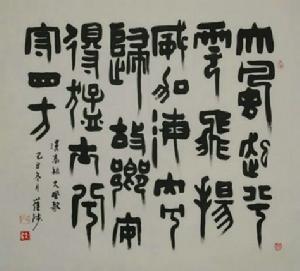 大風起兮
雲飛揚
威加海內兮
歸故鄉安
得猛士兮
守四方
漢高祖大風歌
丑冬月